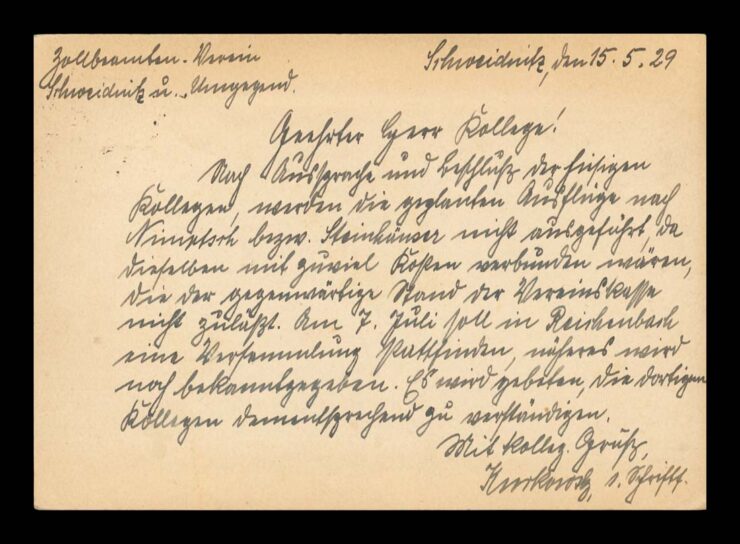 Zollbeamten-Verein
Schweidnitz u. Umgegend.
Schweidnitz, den 15.5.29
Geehrter Herr Kollege!
Nach Aussprache und Beschluß der hiesigen
Kollegen, werden die geplanten Ausflüge nach
Nimptsch bezw. Steinhäuser nicht ausgeführt, da
dieselben mit zuviel Kosten verbunden wären,
die der gegenwärtige Stand der Vereinskasse
nicht zuläßt. Am 7. Juli soll in Reichenbach
eine Versammlung stattfinden, näheres wird
noch bekanntgegeben. Es wird gebeten, die dortigen
Kollegen dementsprechend zu verständigen.
Mit kolleg. Gruß,
Schriftf.